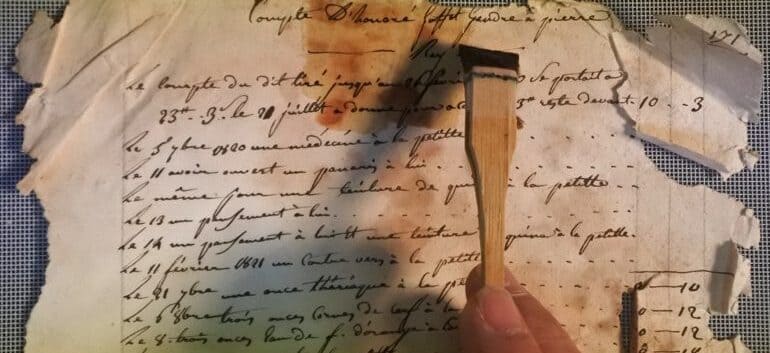 Compte D'honoré Goffet Gendre à pierre
171
Rey
Le Compte du dit tiré jusqu'au 26 se portait a
23# .. 3s. le 21 juillet a donné 3# reste devant 10 .. 3
Le 5 ybre 1820 une médecine à la petitte
Le 11 avoir ouvert un panaris à lui
Le même jour une teinture de quina à la petitte
Le 13 un pansement à lui
Le 14 un pansement à lui & une teinture quina à la petitte
Le 11 février 1821 un Contre vers à la petitte
Le 21 ybre une once thériaque à la 0 — 10
Le 6 8bre trois onces Cornes de cerf à la 0 — 12
Le 8 trois onces Eau de f. d'orange à 0 — 12